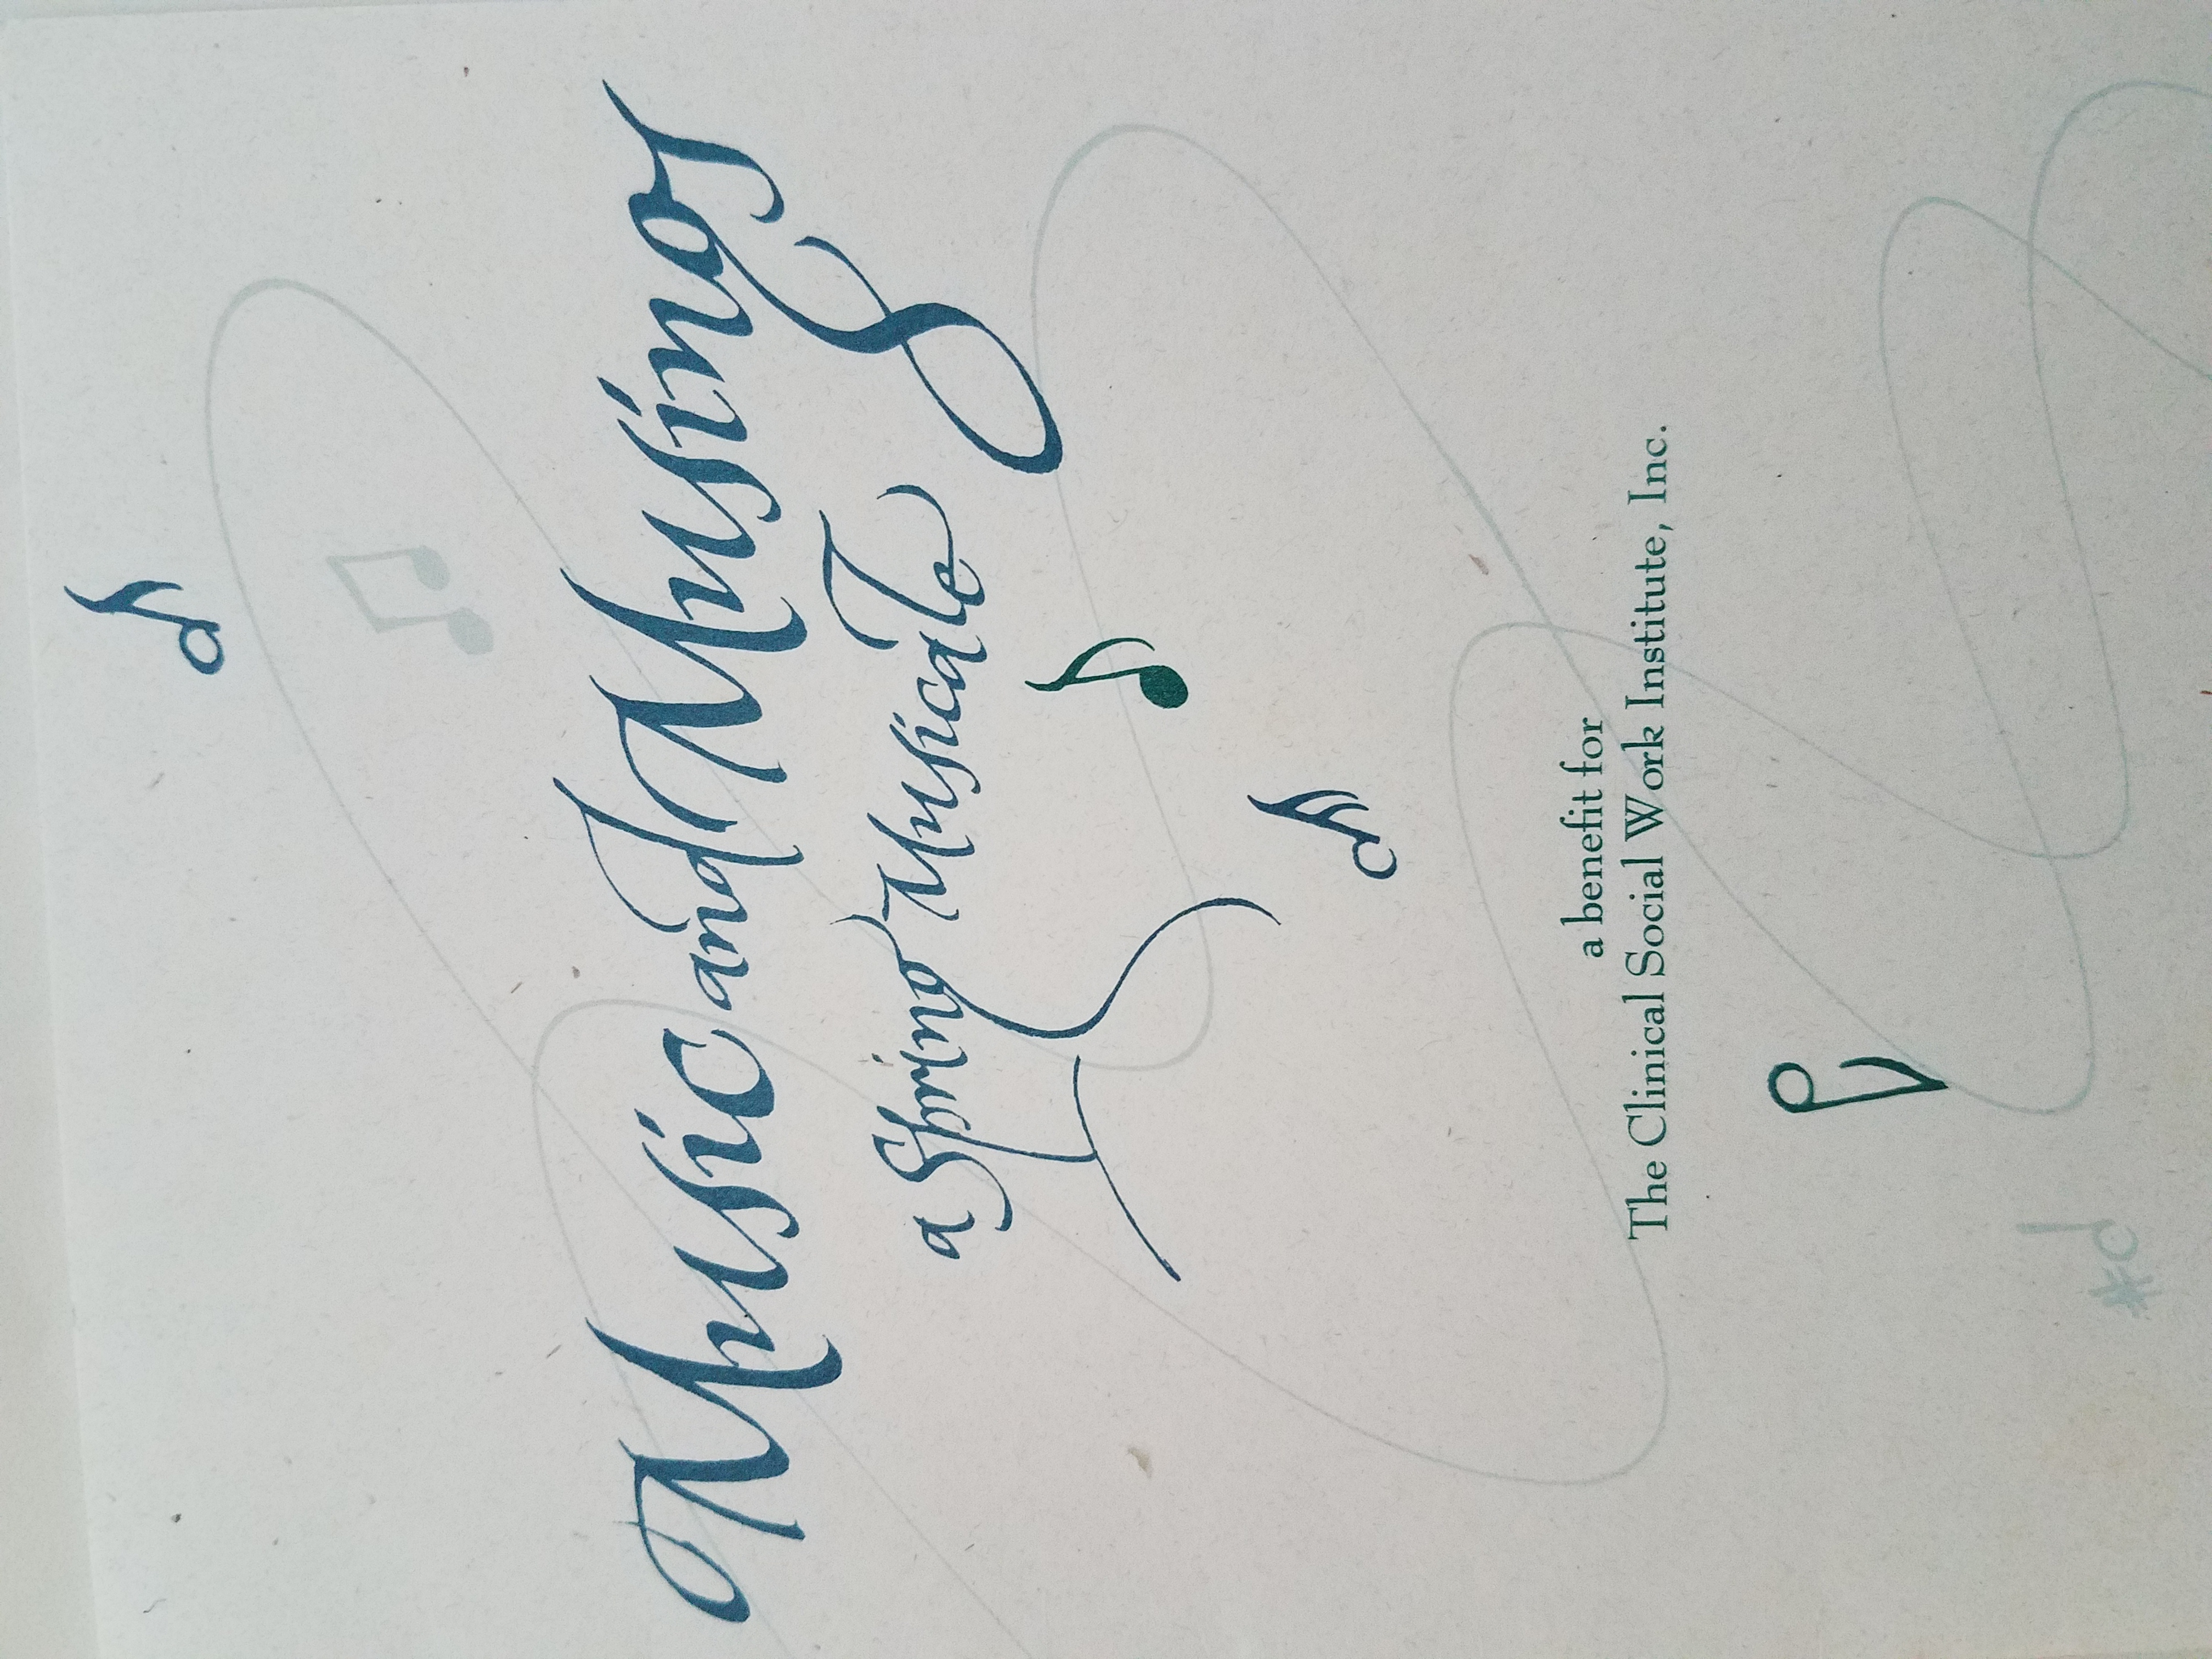 Music and Musings
a Spring Musicale
a benefit for
The Clinical Social Work Institute, Inc.